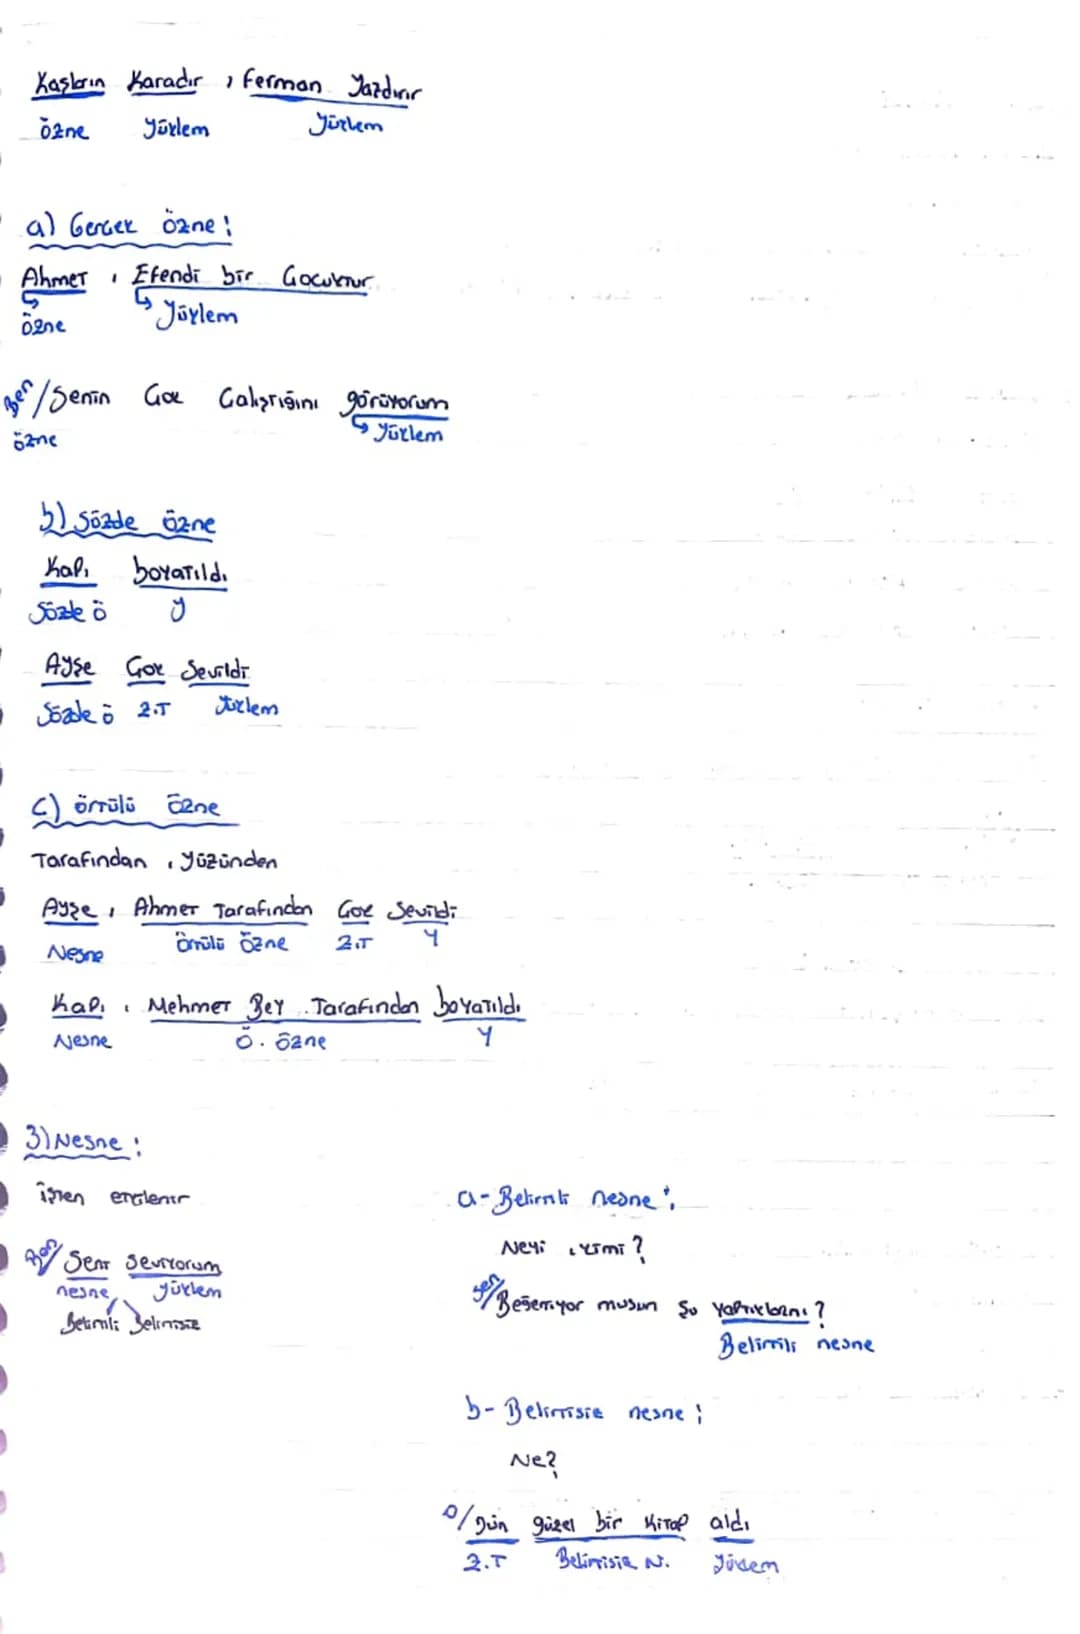 Kaşların Karadır , ferman Yazdırır
özne yüklem yüklem
a) Gerçek özne :
Ahmet , Efendi bir Çocuktur
özne Yüklem
Ben/Senin Çok Çalıştığını görüyorum
özne yüklem
b) Sözde özne
Kapı boyatıldı
Sözde ö y
Ayşe Çok Sevildi
Sözde ö Z.T Yüklem
C) örtülü özne
Tarafından , yüzünden
Ayşe , Ahmet Tarafından Çok Sevildi
Nesne Örtülü Özne Z.T Y
Kapı , Mehmet Bey Tarafından boyatıldı
Nesne Ö. özne Y
3) Nesne :
işten etkilenir
Ben/Seni Seviyorum
nesne yüklem
Belirtili Belirtisiz
a- Belirtili nesne :
Neyi , kimi ?
sen/Beğenmiyor musun Şu yaptıklarını ?
Belirtili nesne
b- Belirtisiz nesne :
Ne?
O/Dün güzel bir kitap aldı
Z.T Belirtisiz N. yüklem